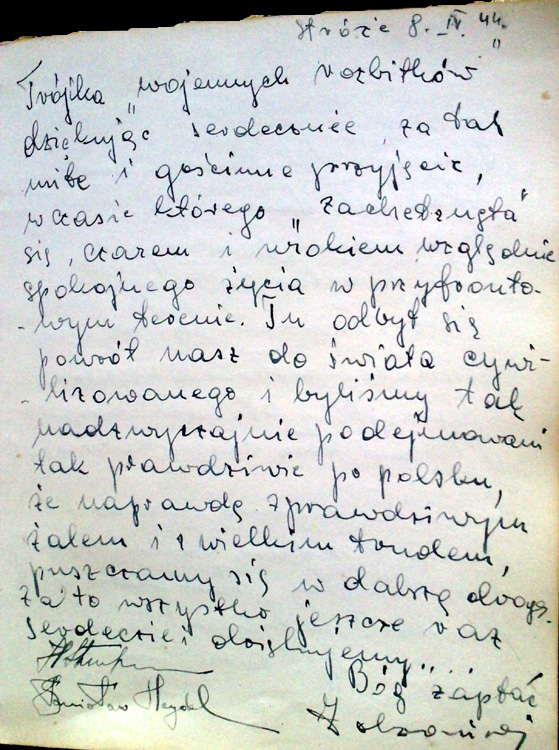 Stróże 8. IV. 44.
Trójka „wojennych rozbitków"
dziękując serdecznie za tak
miłe i gościnne przyjęcie,
w czasie którego „zachłysnęła"
się, czarem i urokiem względnie
spokojnego życia w przyfronto-
-wym terenie. Tu odbył się
powrót nasz do świata cywi-
-lizowanego i byliśmy tak
nadzwyczajnie podejmowani
tak prawdziwie po polsku,
że naprawdę z prawdziwym
żalem i z wielkim trudem,
puszczamy się w dalszą drogę.
Za to wszystko jeszcze raz
serdecznie dziękujemy...
Bóg zapłać
Stanisław Heydel